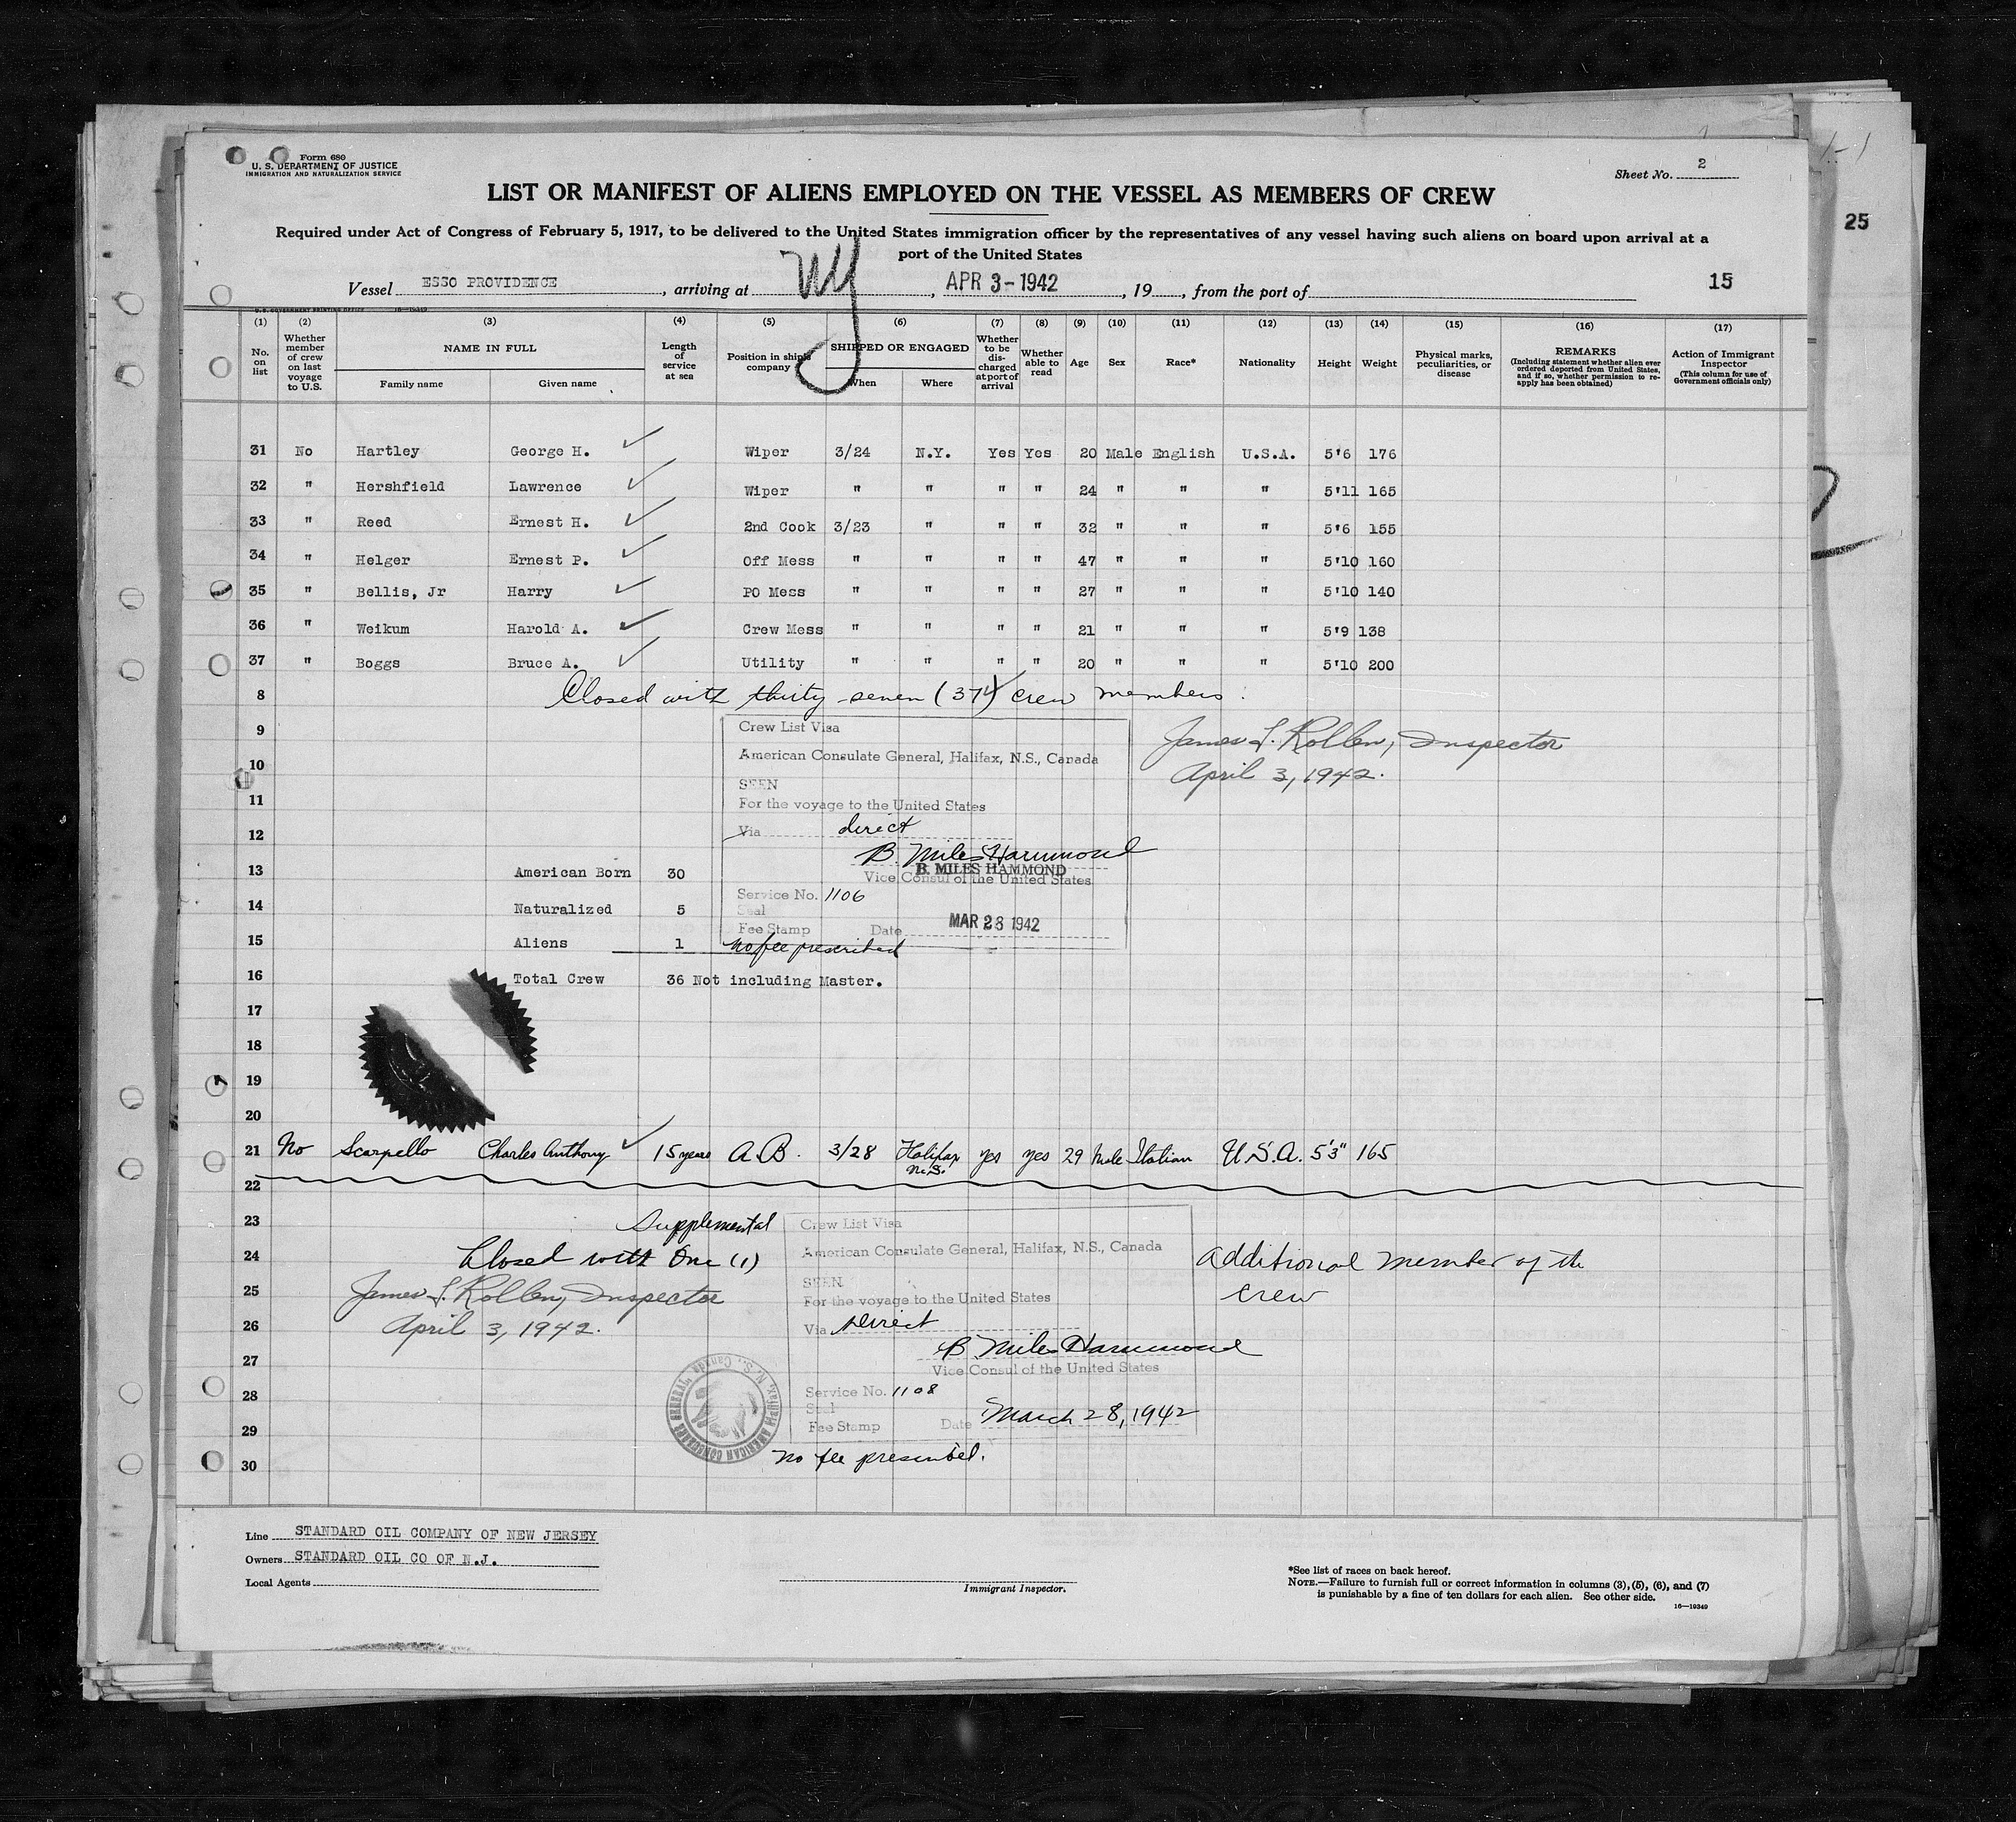 Form 680
U. S. DEPARTMENT OF JUSTICE
IMMIGRATION AND NATURALIZATION SERVICE
Sheet No. 2
LIST OR MANIFEST OF ALIENS EMPLOYED ON THE VESSEL AS MEMBERS OF CREW
25
Required under Act of Congress of February 5, 1917, to be delivered to the United States immigration officer by the representatives of any vessel having such aliens on board upon arrival at a
port of the United States
Vessel ESSO PROVIDENCE, arriving at NY, APR 3-1942, 19, from the port of
15
U.S. GOVERNMENT PRINTING OFFICE 16—19349
(1) (2) (3) (4) (5) (6) (7) (8) (9) (10) (11) (12) (13) (14) (15) (16) (17)
No. on list
Whether member of crew on last voyage to U.S.
NAME IN FULL
Family name
Given name
Length of service at sea
Position in ship's company
SHIPPED OR ENGAGED
When
Where
Whether to be discharged at port of arrival
Whether able to read
Age
Sex
Race*
Nationality
Height
Weight
Physical marks, peculiarities, or disease
REMARKS
(Including statement whether alien ever ordered deported from United States, and if so, whether permission to reapply has been obtained)
Action of Immigrant Inspector
(This column for use of Government officials only)
31 No Hartley George H. ✓ Wiper 3/24 N.Y. Yes Yes 20 Male English U.S.A. 5'6 176
32 " Hershfield Lawrence ✓ Wiper " " " " 24 " " " 5'11 165
33 " Reed Ernest H. ✓ 2nd Cook 3/23 " " " 32 " " " 5'6 155
34 " Helger Ernest P. ✓ Off Mess " " " " 47 " " " 5'10 160
35 " Bellis, Jr Harry ✓ PO Mess " " " " 27 " " " 5'10 140
36 " Weikum Harold A. ✓ Crew Mess " " " " 21 " " " 5'9 138
37 " Boggs Bruce A. ✓ Utility " " " " 20 " " " 5'10 200
8 Closed with thirty-seven (37) crew members
9 Crew List Visa
James L. Rollen, Inspector
10 American Consulate General, Halifax, N.S., Canada
April 3, 1942.
SEEN
11 For the voyage to the United States
12 Via direct
B. Miles Hammond
B. MILES HAMMOND
13 American Born 30 Vice Consul of the United States
Service No. 1106
14 Naturalized 5 Seal
Fee Stamp Date MAR 28 1942
15 Aliens 1 No fee prescribed
16 Total Crew 36 Not including Master.
17
18
19
20
21 No Scarpello Charles Anthony ✓ 15 years A.B. 3/28 Halifax N.S. yes yes 29 Male Italian U.S.A. 5'3" 165
22
23 Supplemental Crew List Visa
24 Closed with One (1) American Consulate General, Halifax, N.S., Canada additional member of the
crew
25 James L. Rollen, Inspector SEEN
For the voyage to the United States
26 April 3, 1942. Via Direct
B. Miles Hammond
27 Vice Consul of the United States
28 Service No. 1108
Seal
29 Fee Stamp Date March 28, 1942
30 No fee prescribed.
AMERICAN CONSULATE GENERAL, Halifax, N.S., Canada
Line STANDARD OIL COMPANY OF NEW JERSEY
Owners STANDARD OIL CO OF N.J.
Local Agents
Immigrant Inspector.
*See list of races on back hereof.
NOTE.—Failure to furnish full or correct information in columns (3), (5), (6), and (7)
is punishable by a fine of ten dollars for each alien. See other side.
16—19349